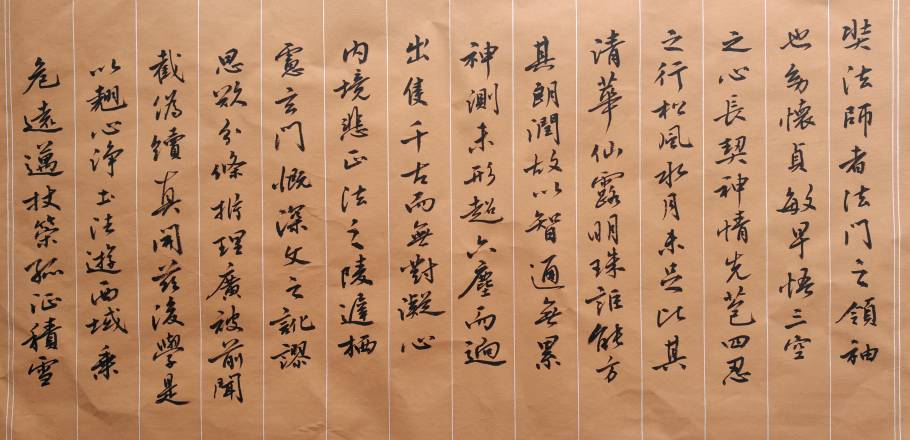 奘法師者法門之領袖
也幼懷貞敏早悟三空
之心長契神情先苞四忍
之行松風水月未足比其
清華仙露明珠詎能方
其朗潤故以智通無累
神測未形超六塵而迥
出隻千古而無對凝心
內境悲正法之陵遲栖
慮玄門慨深文之訛謬
思欲分條析理廣被前聞
截偽續真開茲後學是
以翹心淨土法遊西域乘
危遠邁杖策孤征積雪